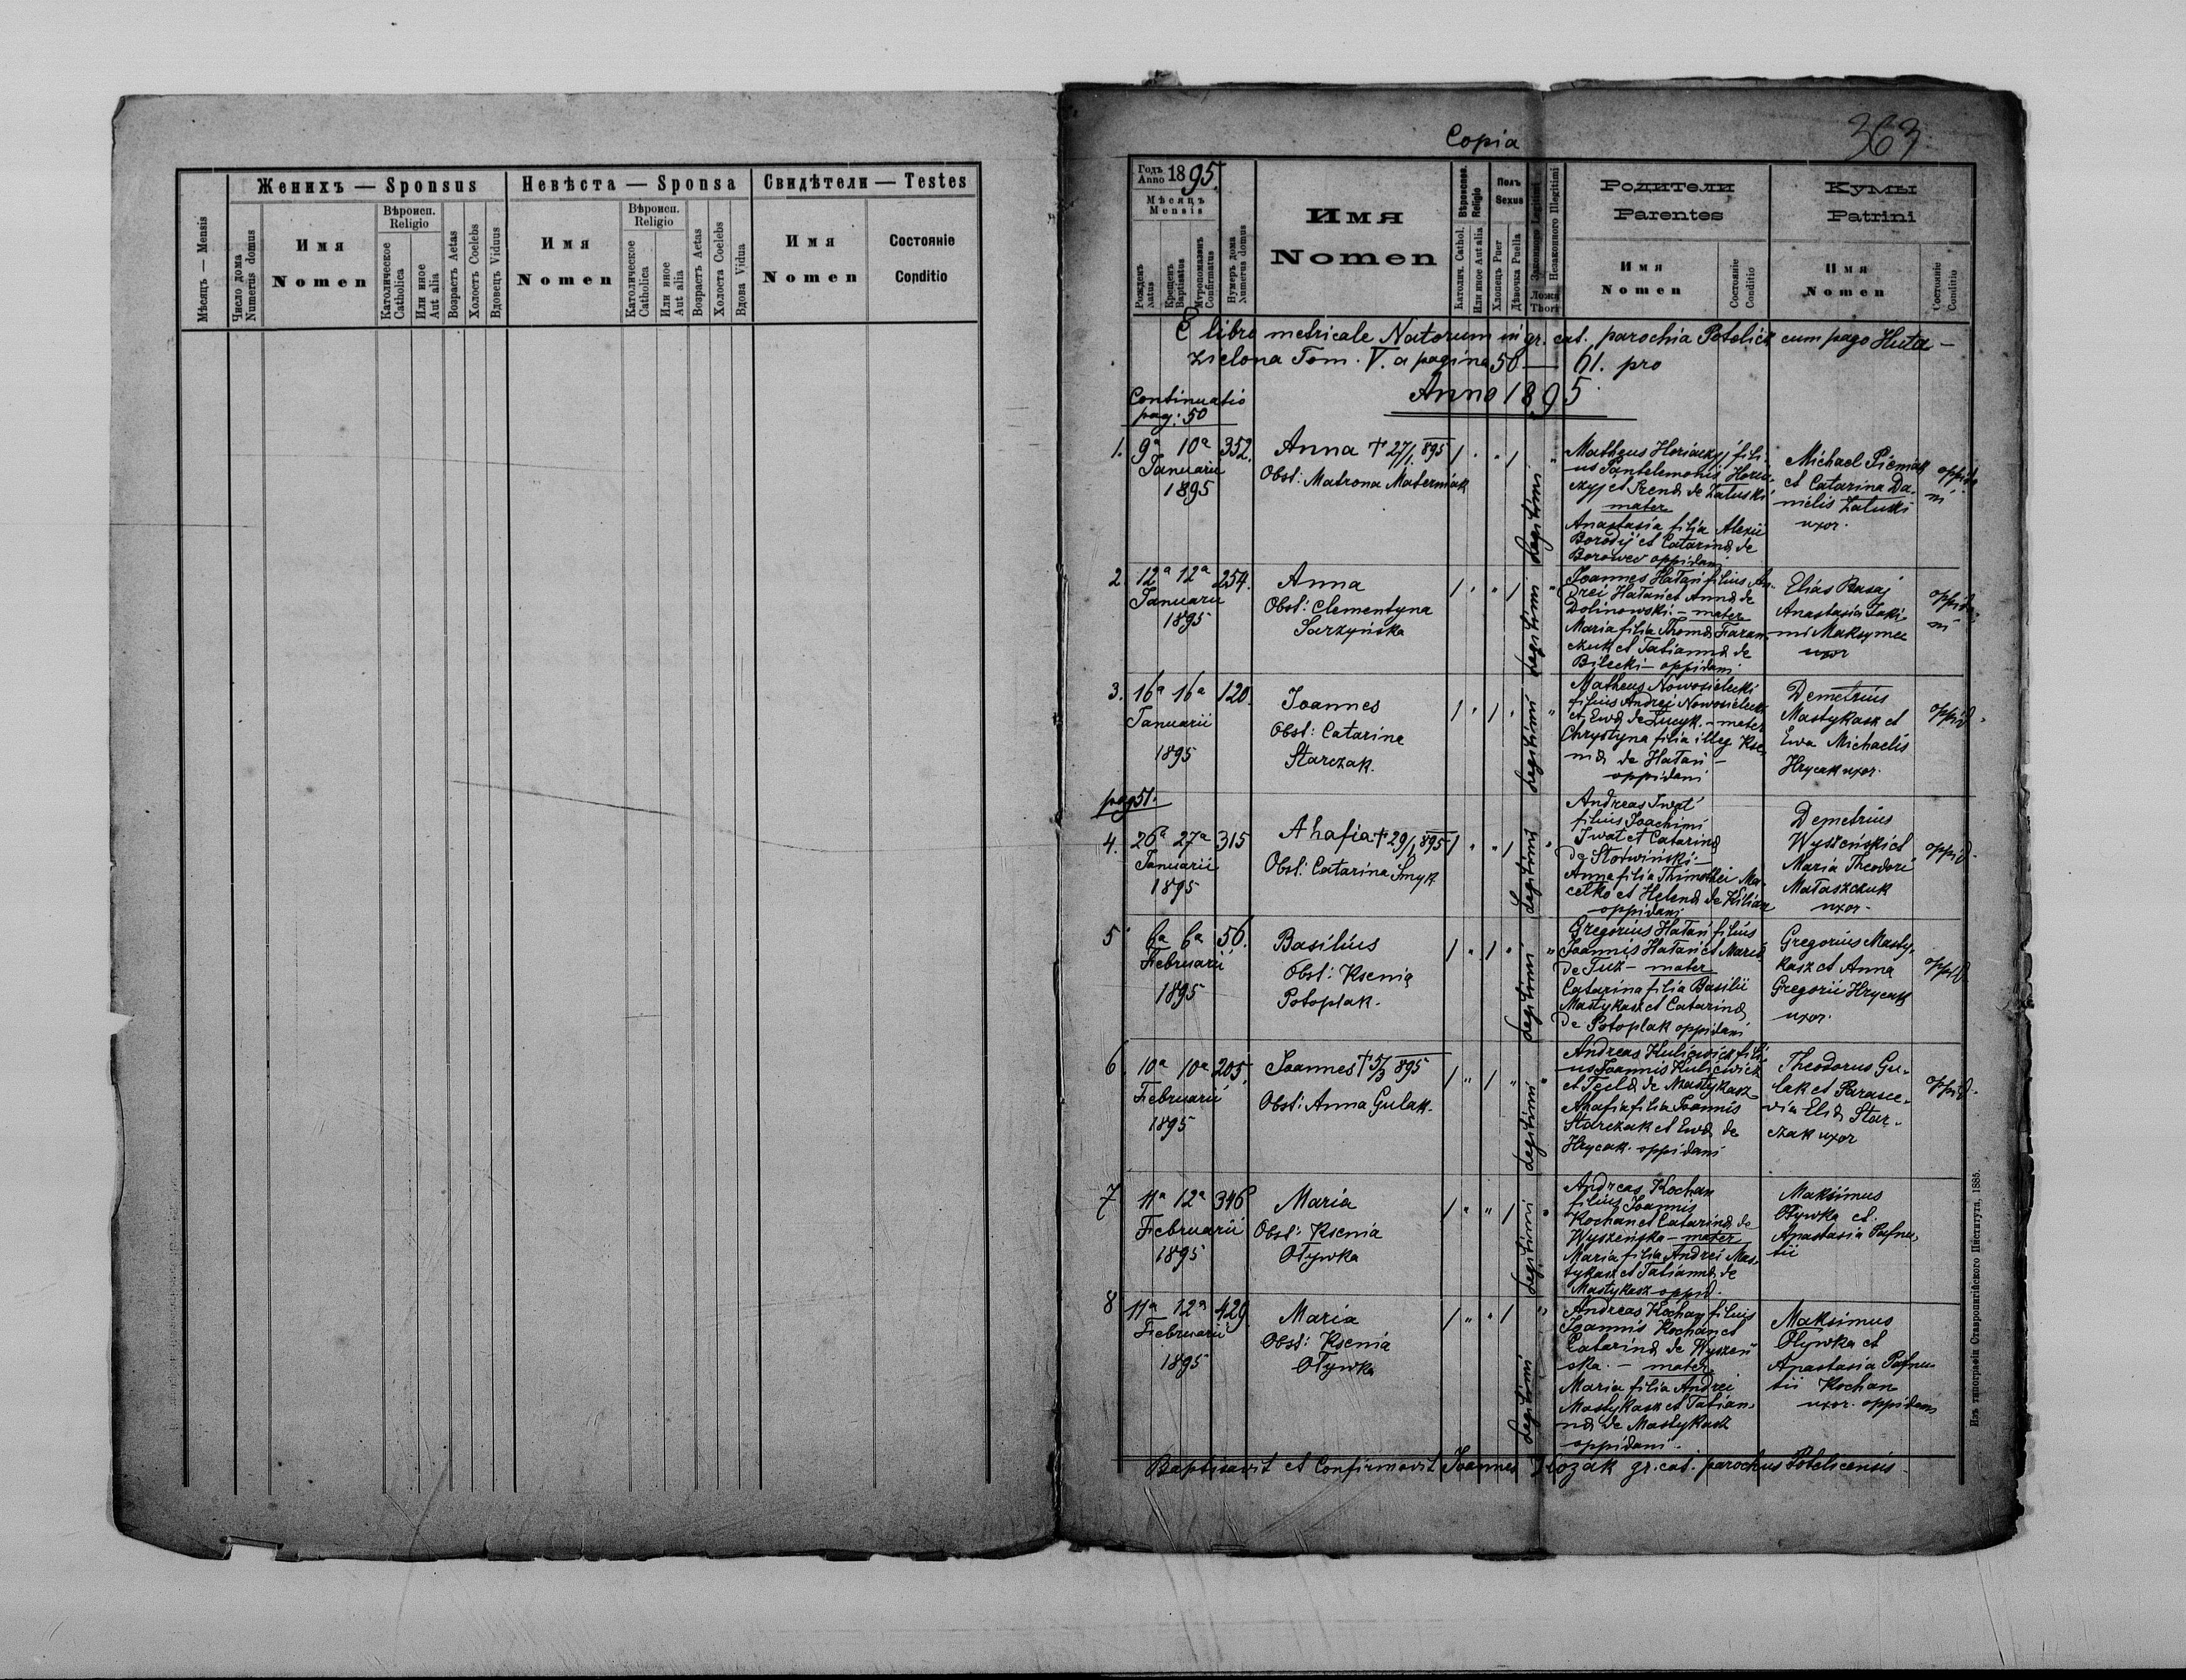 Женихъ — Sponsus
Невѣста — Sponsa
Свидѣтели — Testes
Мѣсяцъ — Mensis
Число дома
Numerus domus
Имя
Nomen
Вѣроисп.
Religio
Католическое
Catholica
Или иное
Aut alia
Возрастъ Aetas
Холостъ Coelebs
Вдовецъ Viduus
Имя
Nomen
Вѣроисп.
Religio
Католическое
Catholica
Или иное
Aut alia
Возрастъ Aetas
Холоста Coelebs
Вдова Vidua
Имя
Nomen
Состояніе
Conditio
Copia
363.
Годъ
Anno 1895.
Мѣсяцъ
Mensis
Рожденъ
Natus
Крещенъ
Baptisatus
Мvропомазанъ
Confirmatus
Нумеръ дома
Numerus domus
Имя
Nomen
Вѣроиспов.
Religio
Католич. Cathol.
Или иное Aut alia
Полъ
Sexus
Хлопецъ Puer
Дѣвочка Puella
Законного Legitimi
Незаконного Illegitimi
Ложа
Thori
Родители
Parentes
Имя
Nomen
Состояніе
Conditio
Кумы
Patrini
Имя
Nomen
Состояніе
Conditio
E libro metricale Natorum in gr. cat. parochia Potelicz cum pago Huta-
zielona Tom. V. a pagina 50 — 61. pro
Anno 1895.
Continuatio
pag: 50
1. 9a 10a 352.
Januarii
1895
Anna † 27/1 895
Obst: Matrona Materniak
legitimi
Matheus Horiaczyj fili-
us Pantelemonis Horia-
czyj et de Załuski
mater
Anastasia filia Alexii
Borodij et Catarinæ de
Borowec oppidani
Michael
et Catarina Da-
nielis Załuski
uxor.
oppida
ni
2. 12a 12a 254.
Januarii
1895
Anna
Obst: Clementyna
Sarzyńska
legitimi
Joannes Hałań filius An-
drei Hałań et Annæ de
Dolinowski. — mater
Maria filia Thomæ Taran-
czuk et Tatiannæ de
Bilecki — oppidani
Elias Basaj
Anastasia
Maksymec
uxor
oppida
ni
3. 16a 16a 120.
Januarii
1895
Joannes
Obst: Catarina
Starczak.
legitimi
Matheus Nowosielecki
filius Andrei Nowosielecki
et Ewæ de — mater
Chrystyna filia illeg Kse-
niæ de Hałań —
oppidani
Demetrius
Mastykasz et
Ewa Michaelis
Hrycak uxor.
oppid.
pag 51.
4. 26a 27a 315
Januarii
1895
Ahafia † 29/1 895
Obst: Catarina Smyk
legitimi
Andreas Iwał
filius Joachimi
Iwał et Catarinæ
de Słotwiński —
Anna filia Thimothei Ma-
cełko et Helenæ de Kilian
oppidani
Demetrius
Wyszeński et
Maria Theodori
Małaszczuk
uxor.
oppid.
5. 6a 6a 56.
Februarii
1895
Basilius
Obst: Ksenia
Potoplak.
legitimi
Gregorius Hałań filius
Joannis Hałań et Mariæ
de Tuz — mater
Catarina filia Basilii
Mastykasz et Catarinæ
de Potoplak oppidani
Gregorius Masty-
kasz et Anna
Gregorii Hrycak
uxor.
oppid.
6. 10a 10a 205.
Februarii
1895
Joannes † 5/3 895
Obst: Anna Gulak.
legitimi
Andreas Kuliewicz fili-
us Joannis Kuliewicz
et Teclæ de Mastykasz
Ahafia filia Joannis
Starczak et Ewæ de
Hrycak. oppidani
Theodorus Gu-
lak et Parasce-
via Eliæ Star-
czak uxor
oppid.
7. 11a 12a 346
Februarii
1895
Maria
Obst: Ksenia
Oływka
legitimi
Andreas Kochan
filius Joannis
Kochan et Catarinæ de
Wyszeńska — mater
Maria filia Andrei Mas-
tykasz et Tatiannæ de
Mastykasz oppid.
Maksimus
Oływka et
Anastasia Pafnu-
tii
8 11a 12a 429.
Februarii
1895
Maria
Obst: Ksenia
Oływka
legitimi
Andreas Kochan filius
Joannis Kochan et
Catarinæ de Wyszeń-
ska. — mater
Maria filia Andrei
Mastykasz et Tatian-
næ de Mastykasz
oppidani.
Maksimus
Oływka et
Anastasia Pafnu-
tii Kochan
uxor. oppidani
Baptisavit et Confirmavit Joannes gr. cat. parochus Potelicensis
Изъ типографіи Ставропигійского Института, 1885.